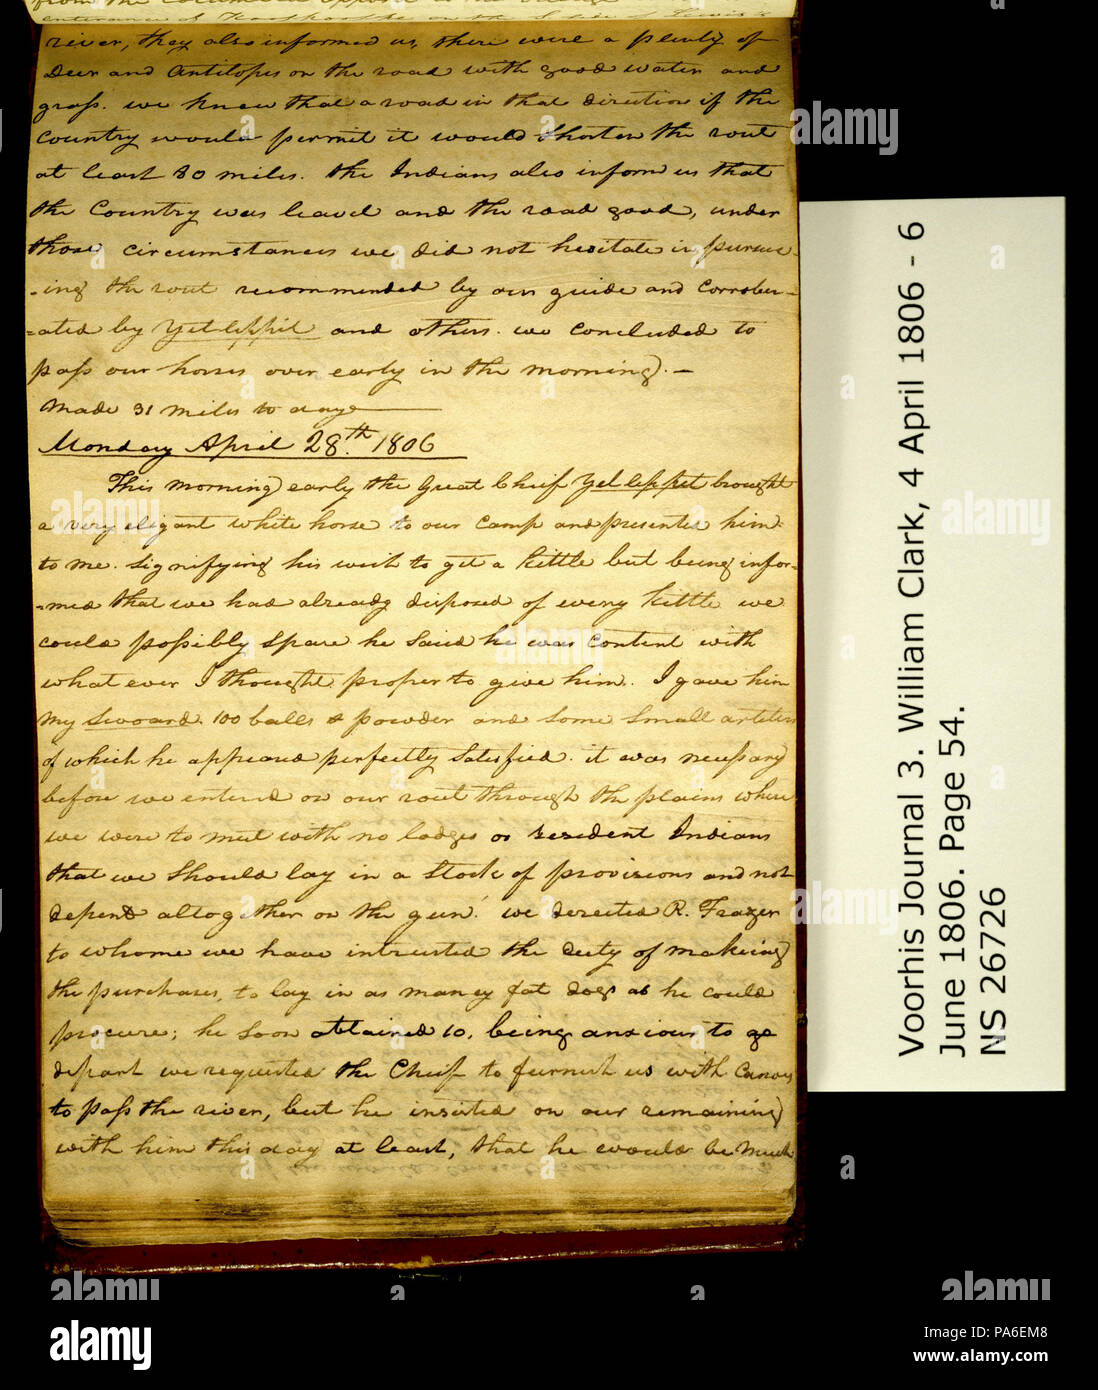 from the Columbia opposit to the Village
entrance of Kooskooske on the S. Side of Lewis's
river, they also informed us, there were a plenty of
Deer and Antilopes on the road with good water and
grass. we knew that a road in that direction if the
Country would permit it would Shorten the rout
at least 80 miles. the Indians also inform us that
the Country was leavel and the road good, under
those circumstances we did not hesitate in pursue-
-ing the rout recommended by our guide and Corrober-
-ated by Yetleppit and others. we concluded to
pass our horses over early in the morning. —
Made 31 miles to day
Monday April 28th. 1806
This morning early the Great Chief Yelleppet brought
a very eligant white horse to our Camp and presented him
to me. Signifying his wish to get a kittle but being infor-
-med that we had already disposed of every kittle we
could possibly Spare he Said he was Content with
what ever I thought proper to give him. I gave him
my Swoard, 100 balls & powder and Some Small articles
of which he appeared perfectly Satisfied. it was necessary
before we entered on our rout through the plains where
we were to meet with no lodges or resident Indians
that we Should lay in a Stock of provisions and not
depend altogether on the gun. we derected R. Frazer
to whome we have intrusted the duty of makeing
the purchases, to lay in as many fat dogs as he could
procure; he Soon obtained 10. being anxious to
depart we requested the Chief to furnish us with Canoes
to pass the river, but he insisted on our remaining
with him this day at least, that he would be much
Voorhis Journal 3. William Clark, 4 April 1806 - 6
June 1806. Page 54.
NS 26726
alamy
a
alamy
Image ID: PA6EM8
www.alamy.com